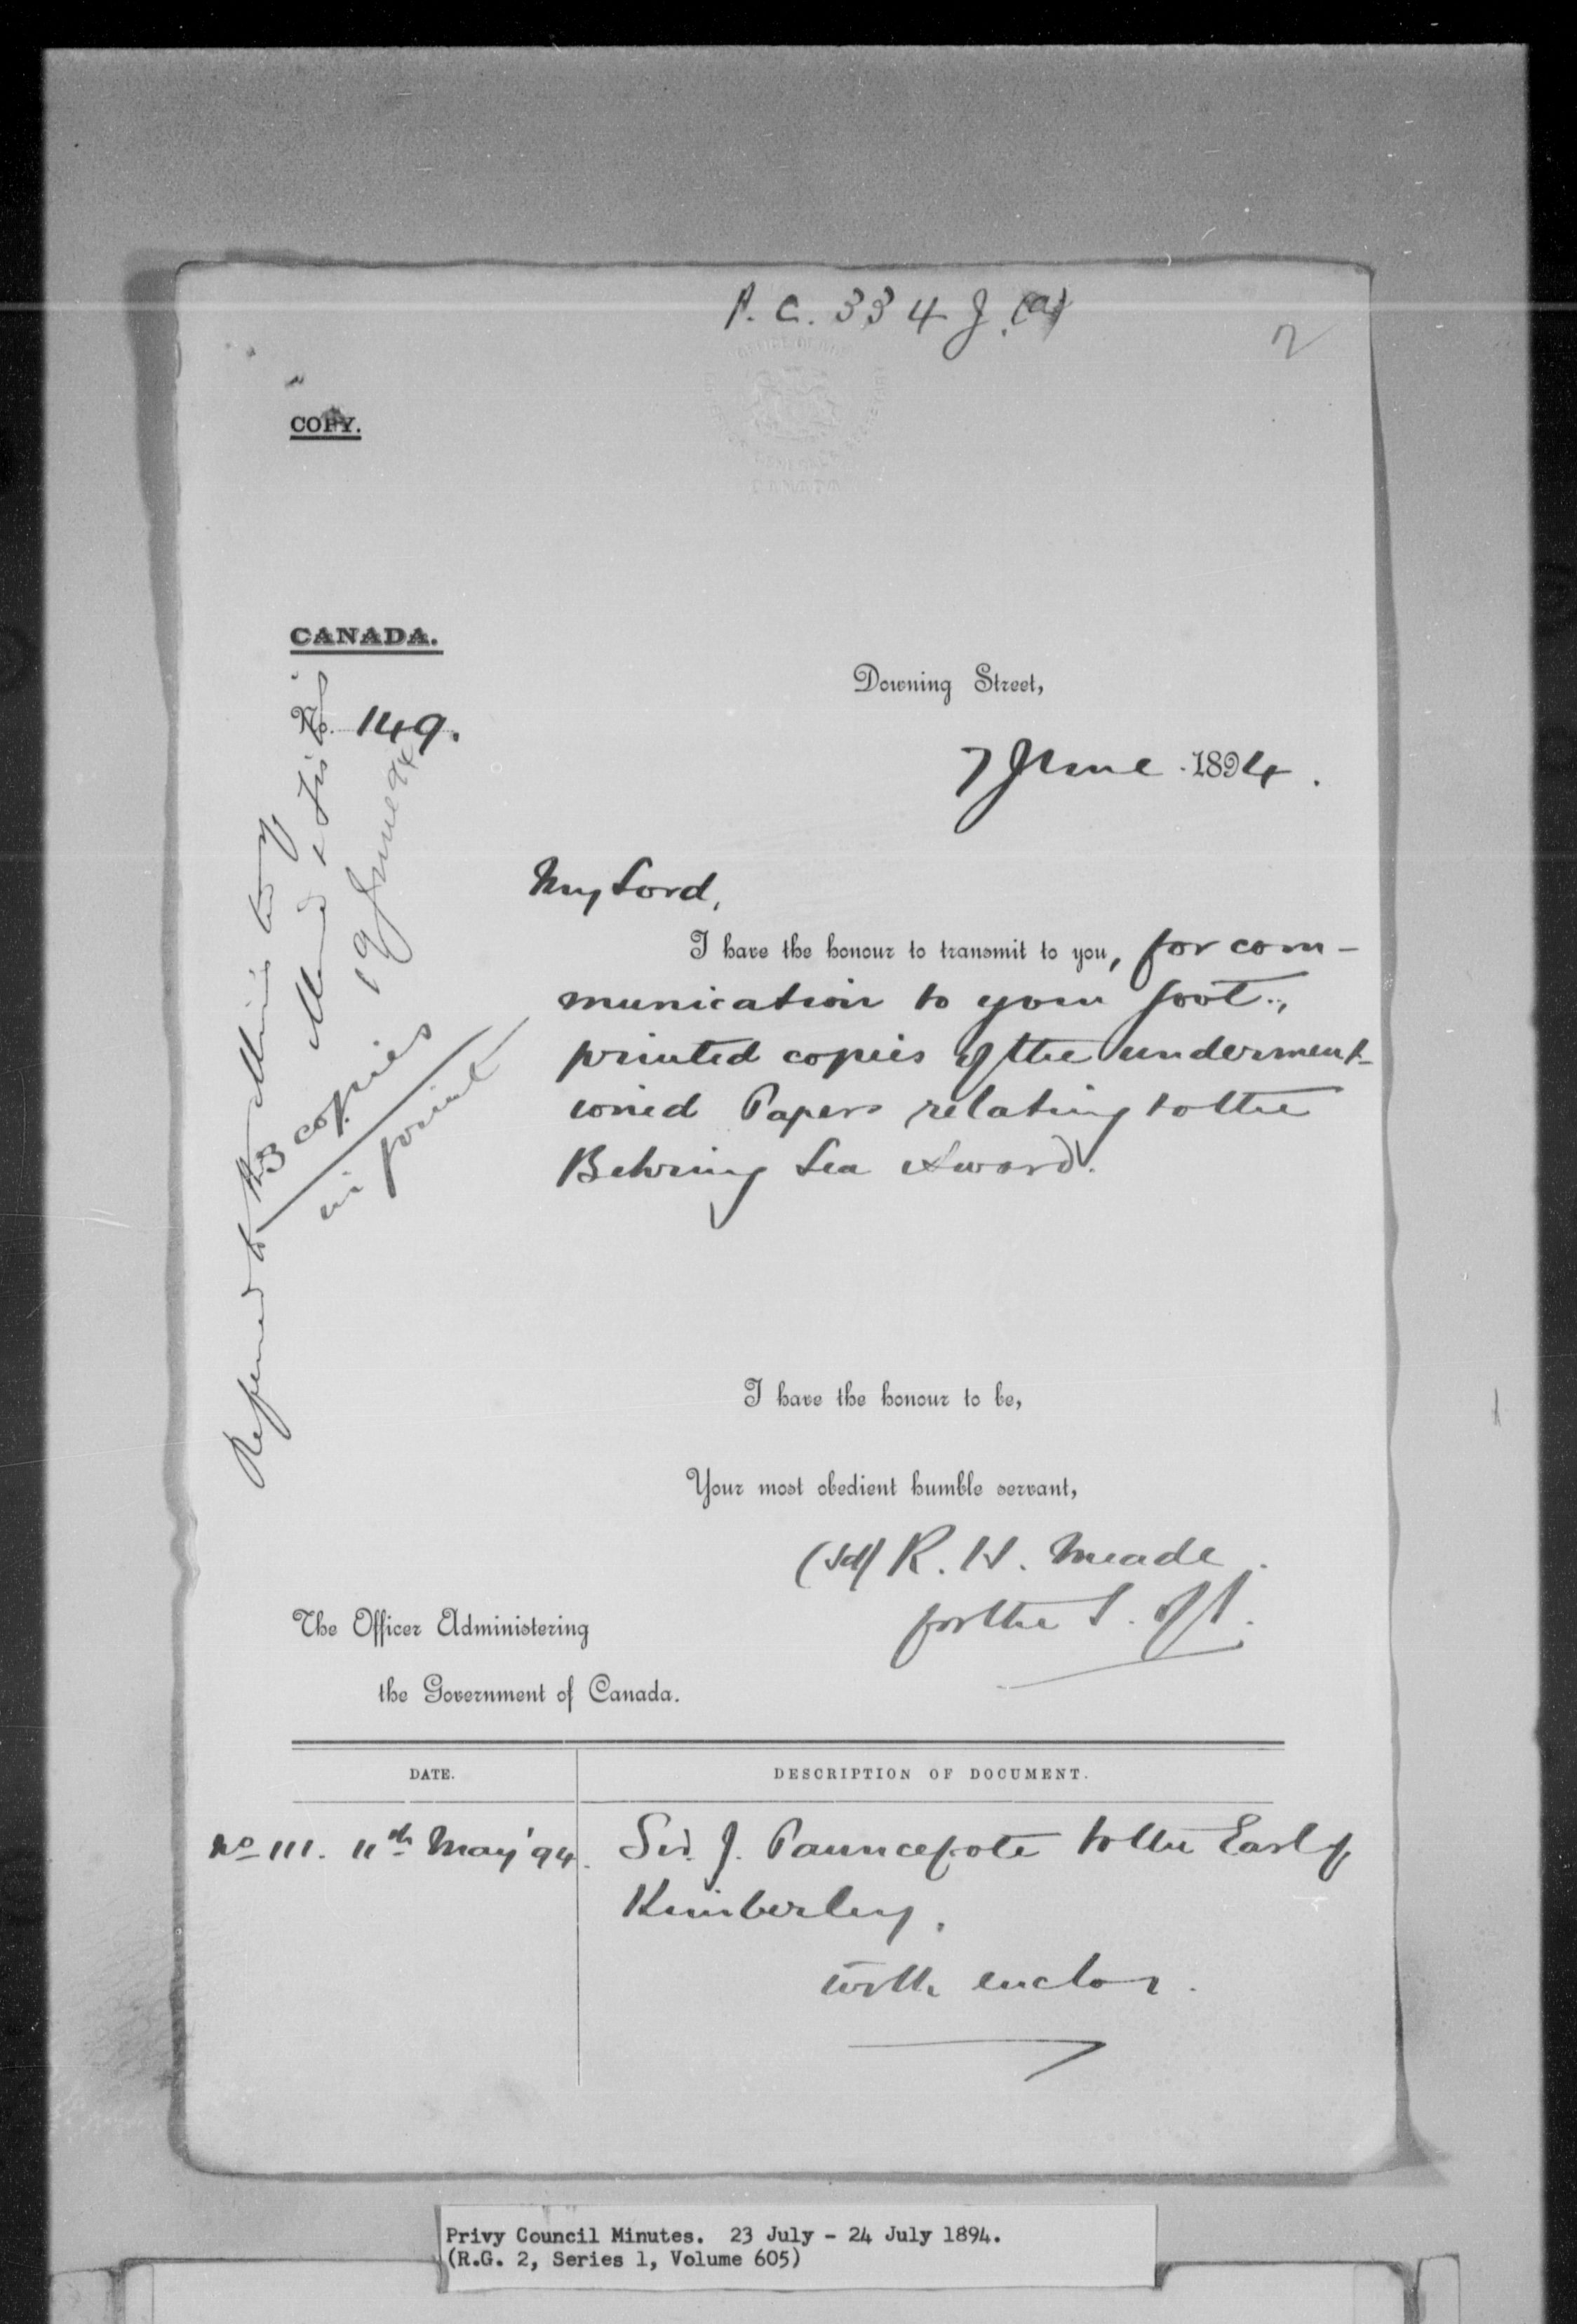 P. C. 334 J. (a)
2
COPY.
CANADA.
Downing Street,
No. 149.
7 June 1894.
My Lord,
I have the honour to transmit to you, for com-
munication to your Govt.,
printed copies of the underment-
ioned Papers relating to the
Behring Sea Award.
Referred to the Minister of
Marine & Fish
19 June 94
3 copies
in print
I have the honour to be,
Your most obedient humble servant,
(sd) R. H. Meade.
for the S. of S.
The Officer Administering
the Government of Canada.
DATE. DESCRIPTION OF DOCUMENT.
No 111. 11th May '94. Sir J. Pauncefote to the Earl of
Kimberley.
with enclos.
Privy Council Minutes. 23 July - 24 July 1894.
(R.G. 2, Series 1, Volume 605)